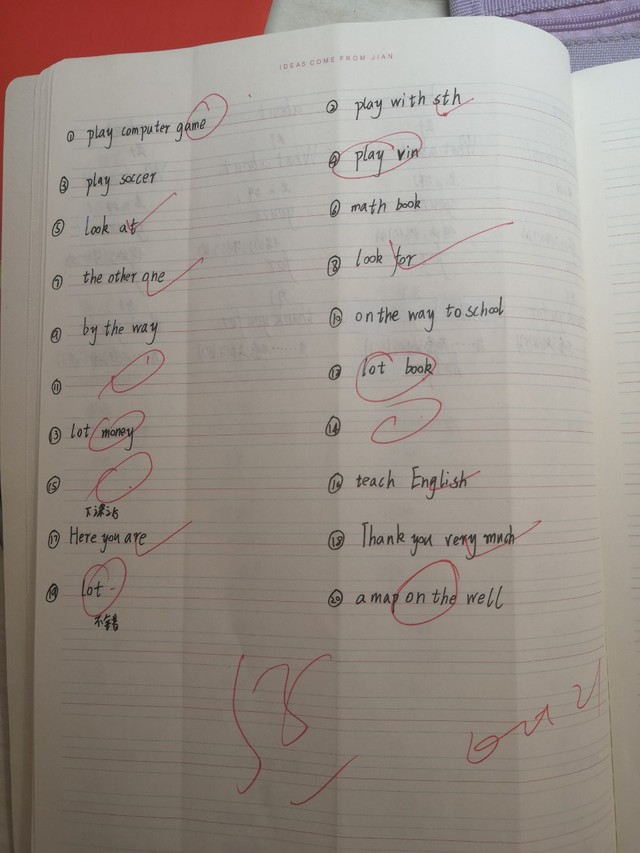 IDEAS COME FROM JIAN
① play computer game
② play with sth
③ play soccer
④ play vin
⑤ look at
⑥ math book
⑦ the other one
⑧ look for
⑨ by the way
⑩ on the way to school
⑪
⑫ lot book
⑬ lot money
⑭
⑮
⑯ teach English
下课后
⑰ Here you are
⑱ Thank you very much
⑲ lot -
⑳ a map on the well